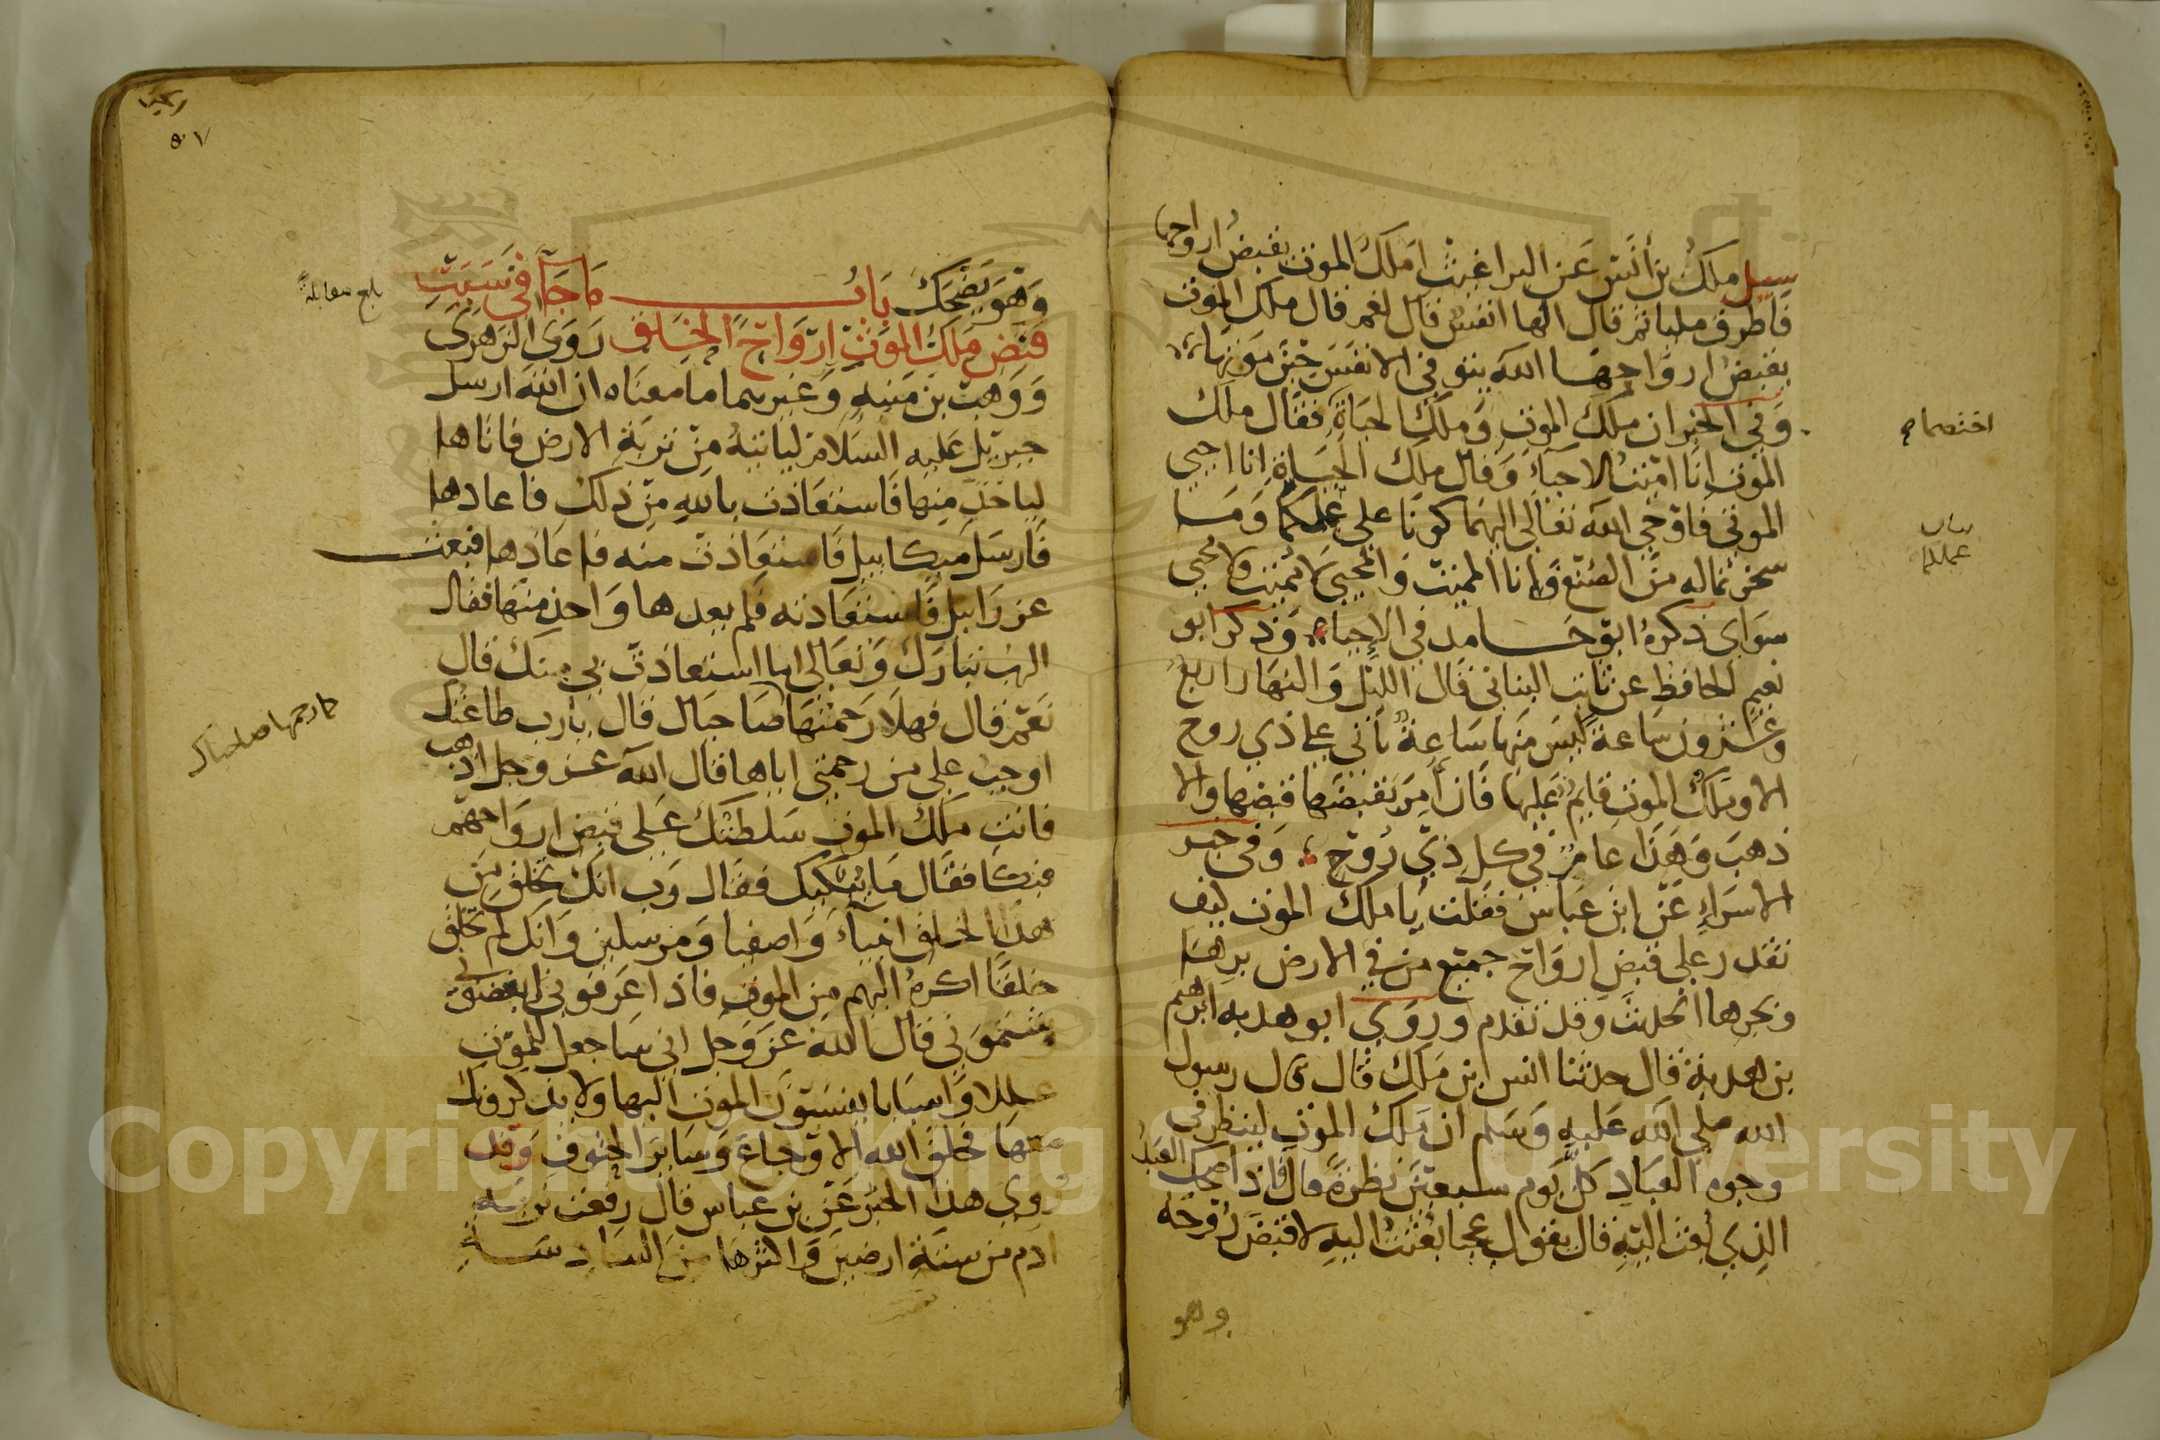 سيل ملك بن أنس عن البراغيث املك الموت يقبض ارواحها
فاطرق مليا ثم قال الها انفس قال نعم قال ملك الموت
يقبض ارواحها الله يتوفى الانفس حين موتها
وفي الخبر ان ملك الموت وملك الحياة فقال ملك
الموت انا اميت الاحياء وقال ملك الحياة انا احيي
الموتى فاوحى الله تعالى اليهما كونا على عملكما وما
سخرتما له من الصنع وانا المميت والمحيي لا مميت ولا محيي
سواي ذكره ابو حامد في الإحياء وذكر ابو
نعيم الحافظ عن ثابت البناني قال الليل والنهار اربع
وعشرون ساعة ليس منها ساعة تأتي على ذي روح
الا وملك الموت قايم عليها فان أمر بقبضها قبضها والا
ذهب وهذا عام في كل ذي روح وفي خبر
الاسراء عن ابن عباس فقلت يا ملك الموت كيف
تقدر على قبض ارواح جميع من في الارض برها
وبحرها الحديث وقد تقدم وروى ابو هدبه ابرهيم
بن هدبة قال حدثنا انس ابن ملك قال قال رسول
الله صلى الله عليه وسلم ان ملك الموت لينظر في
وجوه العباد كل يوم سبعين نظرة قال فاذا ضحك العبد
الذي بعث اليه قال يقول عجبا بعثت اليه لاقبض روحه
وهو
اختصما
بيان
عملكما
وهو يضحك باب ما جآ في سبب
قبض ملك الموت ارواح الخلق روى الزهري
ووهب بن منبه وغيرهما ما معناه ان الله ارسل
جبريل عليه السلام ليأتيه من تربة الارض فاتاها
لياخذ منها فاستعاذت بالله من ذلك فاعاذها
فارسل ميكاييل فاستعاذت منه فاعاذها فبعث
عزراييل فاستعاذته فلم يعدها واخذ منها فقال
الرب تبارك وتعالى اما استعاذت بي منك قال
نعم قال فهلا رحمتها صاحباك قال يارب طاعتك
اوجب علي من رحمتي اياها قال الله عز وجل اذهب
فانت ملك الموت سلطتك على قبض ارواحهم
فبكا فقال ما يبكيك فقال رب انك تخلق من
هذا الخلق انبياء واصفيا ومرسلين وانك لم تخلق
خلقا اكره اليهم من الموت فاذا عرفوني ابغضوني
وشتموني قال الله عز وجل اني ساجعل للموت
عللا واسبابا ينسبون الموت اليها ولا يذكرونك
معها فخلق الله الاوجاع وساير الحتوف وقد
روي هذا الخبر عن بن عباس قال رفعت تربة
ادم من ستة ارضين واكثرها من السادسة
بلغ مقابلة
كما رحمها صاحباك